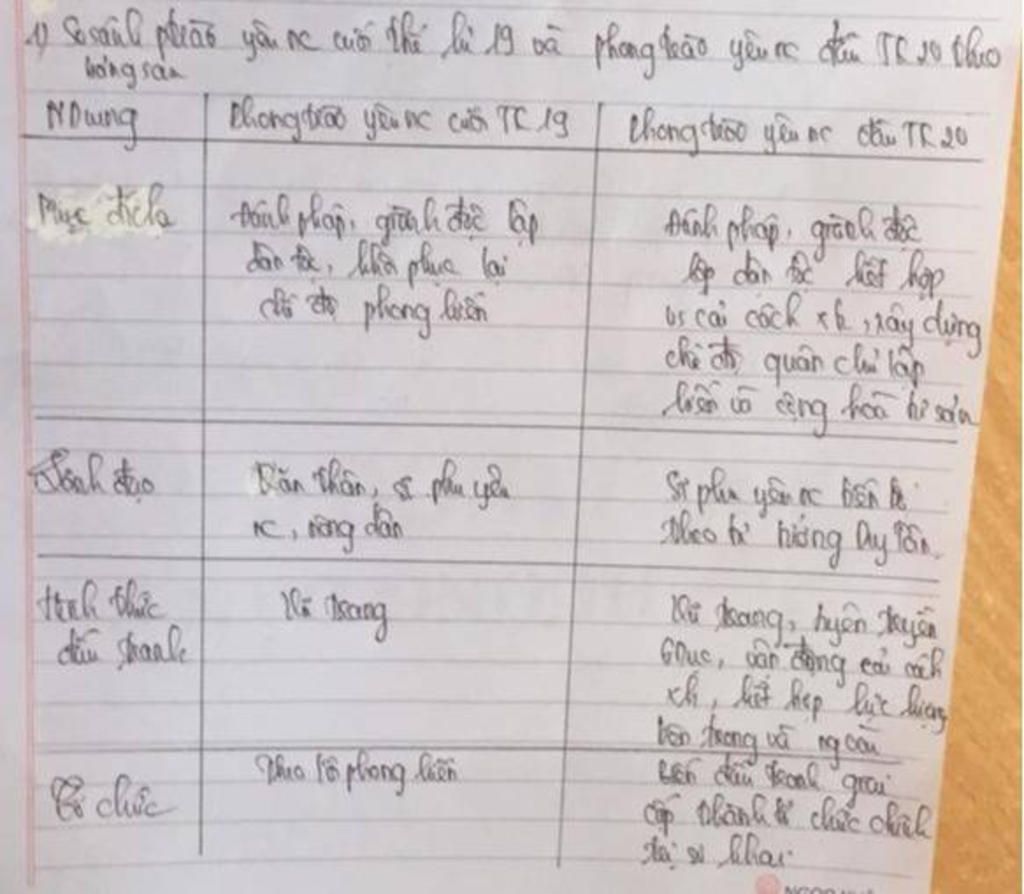 1) So sánh ptrào yêu nc cuối thế kỉ 19 và phong trào yêu nc đầu TK 20 theo
bảng sau
NDung
Phong trào yêu nc cuối TK 19
Phong trào yêu nc đầu TK 20
Mục đích
Đánh pháp, giành độc lập
dân tộc, khôi phục lại
chế độ phong kiến
Đánh pháp, giành độc
lập dân tộc kết hợp
vs cải cách xh, xây dựng
chế độ quân chủ lập
hiến và cộng hoà tư sản
Lãnh đạo
Văn thân, sĩ phu yêu
nc, nông dân
Sĩ phu yêu nc tiến bộ
theo tư tưởng Duy Tân
Hình thức
đấu tranh
Vũ trang
Vũ trang, tuyên truyền
GDục, vận động cải cách
xh, kết hợp lực lượng
bên trong và ng oài
Tổ chức
Theo lối phong kiến
đấu tranh giai
cấp thành tổ chức chính
trị sơ khai